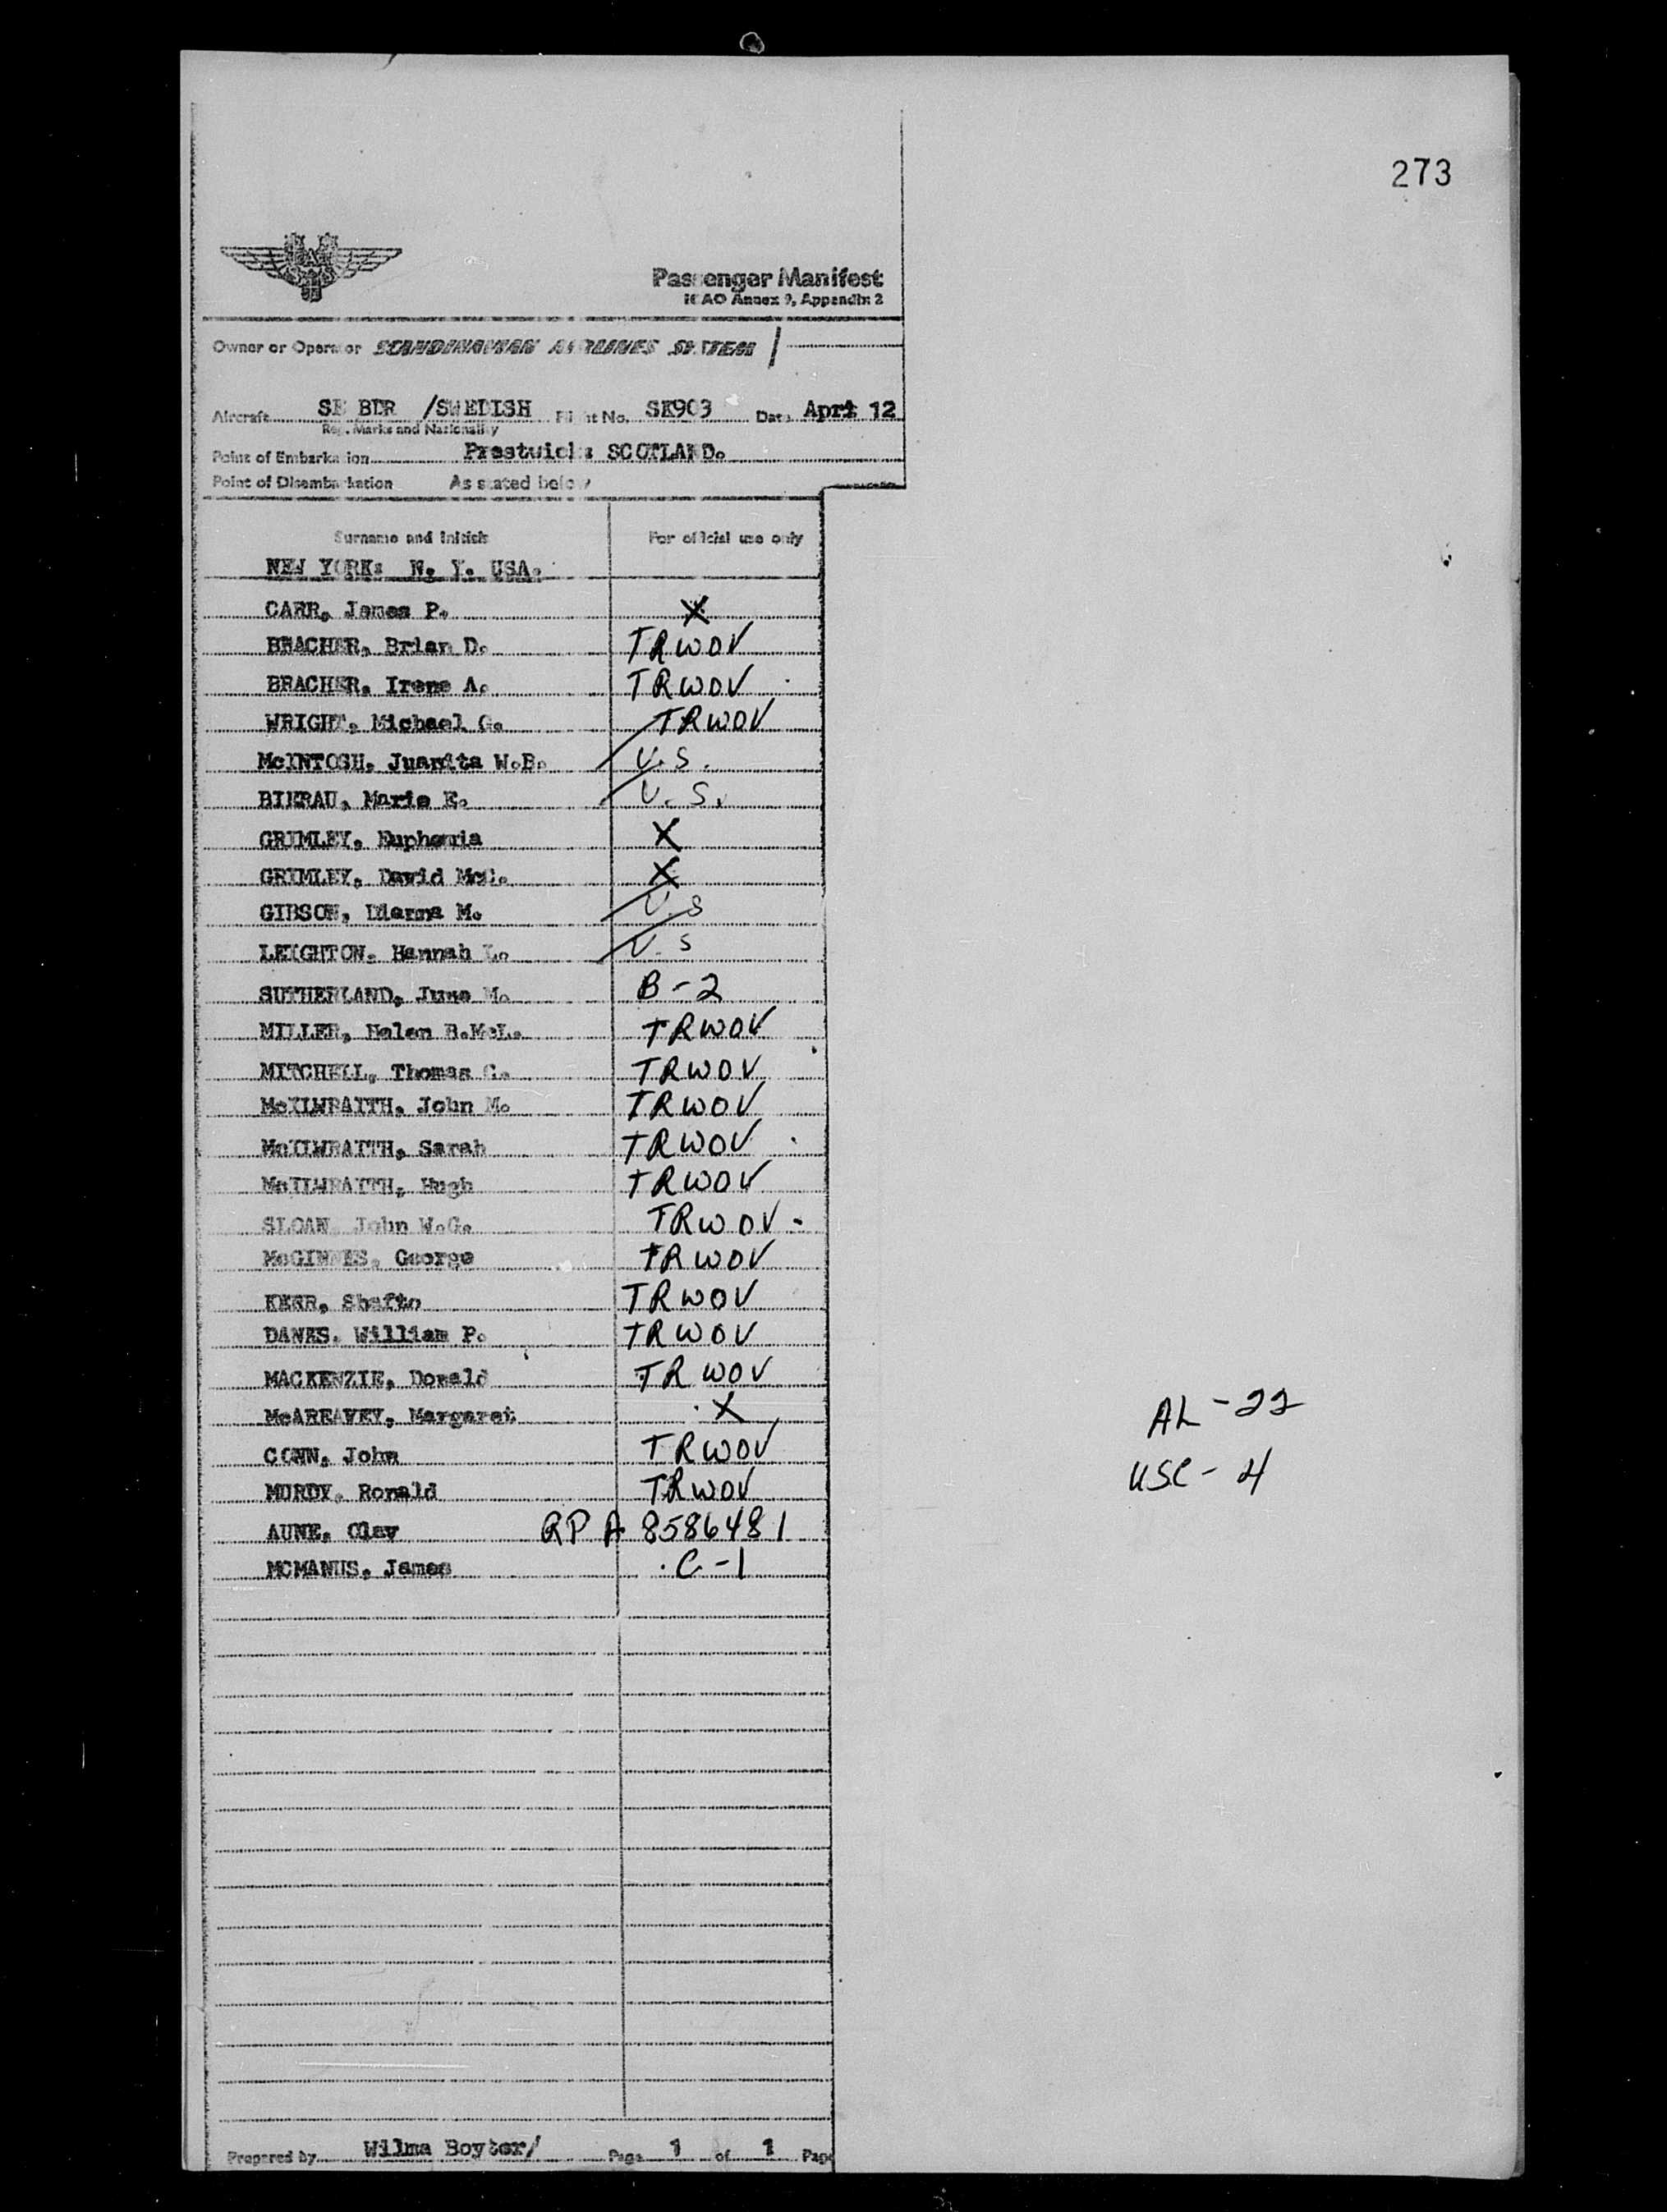 273
Passenger Manifest
ICAO Annex 9, Appendix 2
Owner or Operator SCANDINAVIAN AIRLINES SYSTEM /
Aircraft SE BDR /SWEDISH Flight No. SK903 Date April 12
Reg. Marks and Nationality
Point of Embarkation Prestwick: SCOTLAND.
Point of Disembarkation As stated below
Surname and Initials For official use only
NEW YORK: N. Y. USA.
CARR, James P. X
BRACHER, Brian D. TRWOV
BRACHER, Irene A. TRWOV
WRIGHT, Michael G. TRWOV
McINTOSH, Juanita W.B. U.S.
BIERAU, Marie E. U.S.
GRIMLEY, Euphemia X
GRIMLEY, David McG. X
GIBSON, Dianna M. U.S
LEIGHTON, Hannah L. U.S
SUTHERLAND, June M. B-2
MILLER, Helen B.McL. TRWOV
MITCHELL, Thomas C. TRWOV
McILWRAITH, John M. TRWOV
McILWRAITH, Sarah TRWOV
McILWRAITH, Hugh TRWOV
SLOAN, John W.G. TRWOV-
McGINNES, George TRWOV
KERR, Shafto TRWOV
DANKS, William P. TRWOV
MACKENZIE, Donald TRWOV
McAREAVEY, Margaret X
CONN, John TRWOV
MURDY, Ronald TRWOV
AUNE, Olav RP A 8586481
MCMANUS, James C-1
AL-22
USC-4
Prepared by Wilma Boyter/ Page 1 of 1 Page